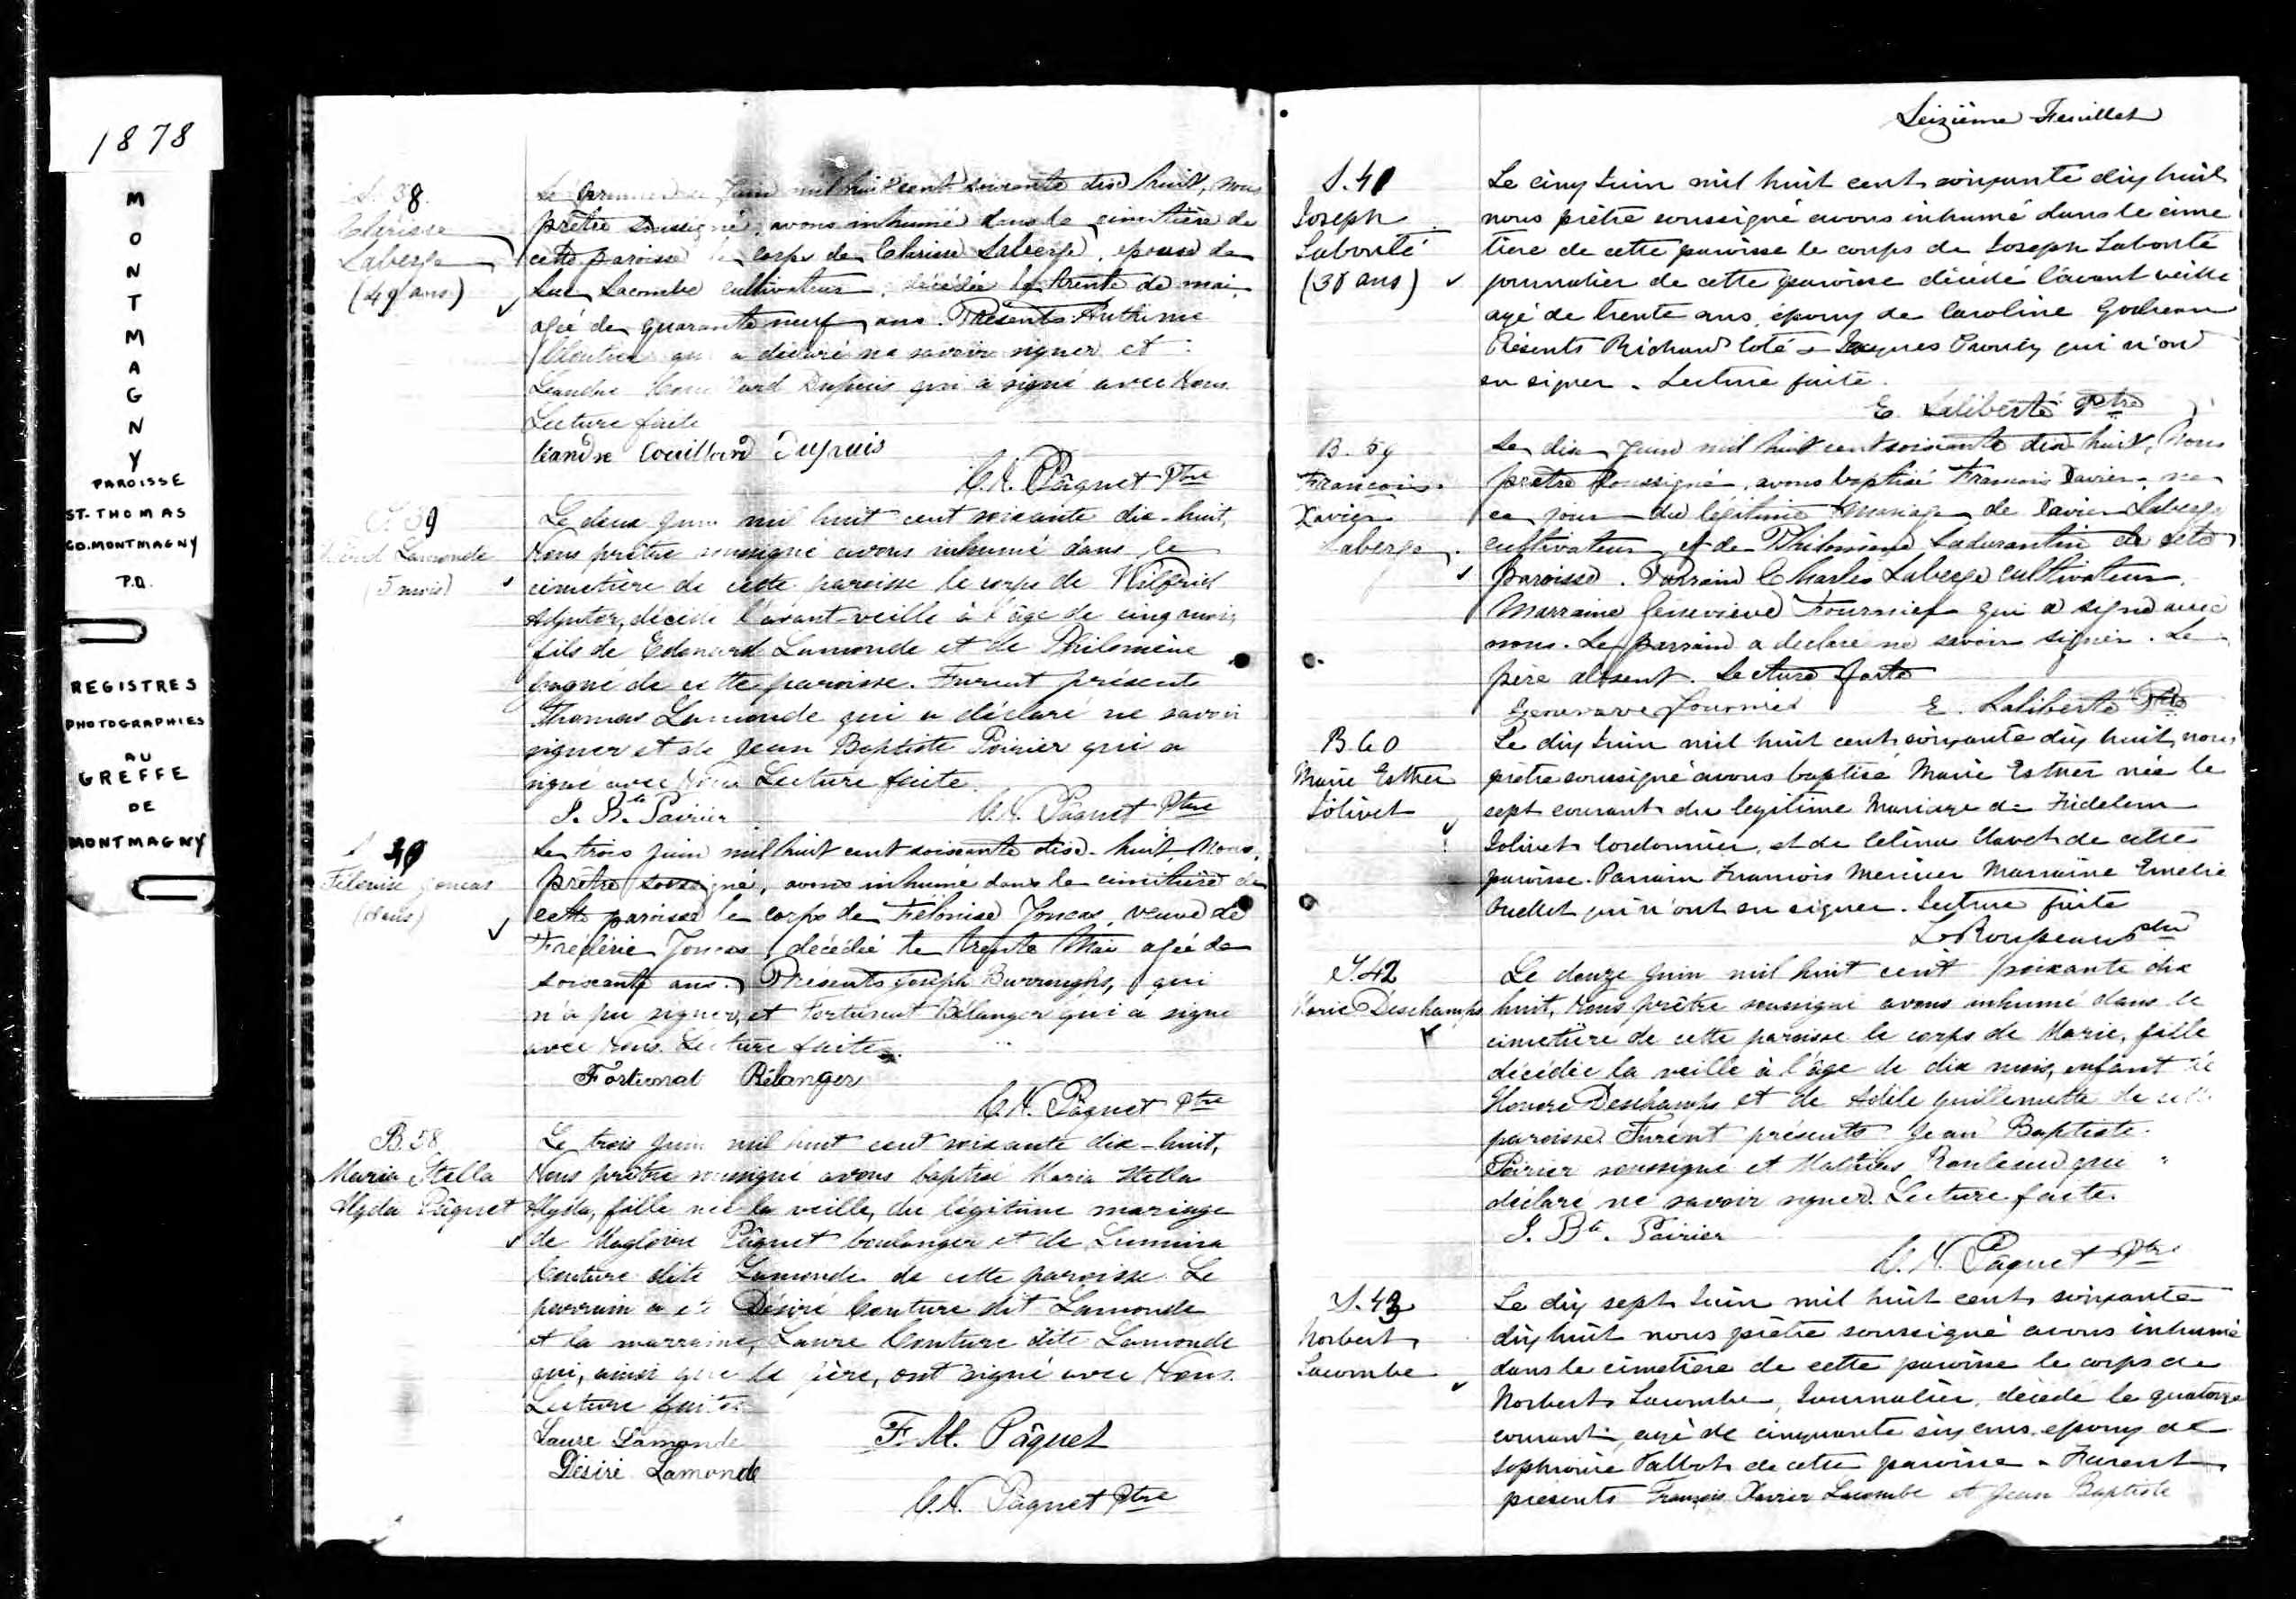 1878
MONTMAGNY
PAROISSE
ST-THOMAS
CO.MONTMAGNY
P.Q.
REGISTRES
PHOTOGRAPHIES
AU
GREFFE
DE
MONTMAGNY
S. 38
Clarisse
Laberge
(49 ans)
Le premier de Juin mil huit cent soixante dix huit, nous
prêtre soussigné, avons inhumé dans le cimetière de
cette paroisse le corps de Clarisse Laberge, epouse de
Luc Lacombe cultivateur, décédée le trente de mai,
agée de quarante neuf ans. Présents Anthime
Cloutier qui a déclaré ne savoir signer et
Léandre Couillard Dupuis qui a signé avec Nous.
Lecture faite
Léandre Couillard Dupuis
Pâquet Ptre
S. 39
Lamonde
(5 mois)
Le deux juin mil huit cent soixante dix-huit,
Nous prêtre soussigné avons inhumé dans le
cimetière de cette paroisse le corps de Wilfrid
Adjutor, décédé l'avant-veille à l'âge de cinq mois,
fils de Edouard Lamonde et de Philomène
de cette paroisse. Furent présents
Thomas Lamonde qui a déclaré ne savoir
signer et de Jean Baptiste Poirier qui a
signé avec Nous Lecture faite.
J. Bte. Poirier
Pâquet Ptre
S. 40
Joncas
Le trois juin mil huit cent soixante dix-huit, Nous,
prêtre soussigné, avons inhumé dans le cimetière de
cette paroisse le corps de Joncas, veuve de
Joncas, décédée le trente Mai agée de
soixante ans. Présents Joseph Burroughs, qui
n'a pu signer, et Fortunat Bélanger qui a signé
avec Nous. Lecture faite.
Fortunat Bélanger
Pâquet Ptre
B. 58
Maria Stella
Alyda Pâquet
Le trois Juin mil huit cent soixante dix-huit,
Nous prêtre soussigné avons baptisé Maria Stella
Alyda, fille née la veille, du légitime mariage
de Magloire Pâquet boulanger et de Lumina
Couture dite Lamonde de cette paroisse. Le
parrain a été Désiré Couture dit Lamonde
et la marraine, Laure Couture dite Lamonde
qui, ainsi que le père, ont signé avec Nous.
Lecture faite.
Laure Lamonde
F. M. Pâquet
Désiré Lamonde
Pâquet Ptre
Seizième Feuillet
S. 41
Joseph
Labonté
(30 ans)
Le cinq Juin mil huit cent soixante dix huit
nous prêtre soussigné avons inhumé dans le cime
tière de cette paroisse le corps de Joseph Labonté
journalier de cette paroisse décédé l'avant veille
agé de trente ans, époux de Caroline Godreau
Présents Richard Coté & Jacques Proulx qui n'ont
su signer. Lecture faite.
E. Laliberté Ptre
B. 59
François
Xavier
Laberge
Le dix Juin mil huit cent soixante dix huit, Nous
prêtre soussigné, avons baptisé François Xavier, né
ce jour du légitime mariage de Xavier Laberge
cultivateur et de Philomène Ladurantin de cete
paroisse. Parrain Charles Laberge cultivateur.
Marraine Geneviève Fournier qui a signé avec
nous. Le parrain a declaré ne savoir signer. Le
père absent. Lecture faite
Fournier
E. Laliberté Ptre
B. 60
Marie Esther
Jolivet
Le dix Juin mil huit cent soixante dix huit, nous
prêtre soussigné avons baptisé Marie Esther née le
sept courant du legitime Mariage de
Jolivet Cordonnier, et de Celina Clavet de cette
paroisse. Parrain Francois Mercier Marraine Emelie
Ouellet qui n'ont su signer. Lecture faite
Ptre
S. 42
Marie Deschamps
Le douze juin mil huit cent soixante dix
huit, Nous prêtre soussigné avons inhumé dans le
cimetière de cette paroisse le corps de Marie, fille
décédée la veille à l'âge de dix mois, enfant de
Honoré Deschamps et de Adèle Guillemette de cette
paroisse. Furent présents Jean Baptiste
Poirier soussigné et Mathias Rouleau qui a
déclaré ne savoir signer. Lecture faite.
J. Bte. Poirier
Pâquet Ptre
S. 43
Norbert
Lacombe
Le dix sept Juin mil huit cent soixante
dix huit nous prêtre soussigné avons inhumé
dans le cimetière de cette paroisse le corps de
Norbert Lacombe, Journalier, décédé le quatorze
courant, agé de cinquante six ans, epoux de
Sophronie Talbot de cette paroisse. Furent
présents François Xavier Lacombe et Jean Baptiste